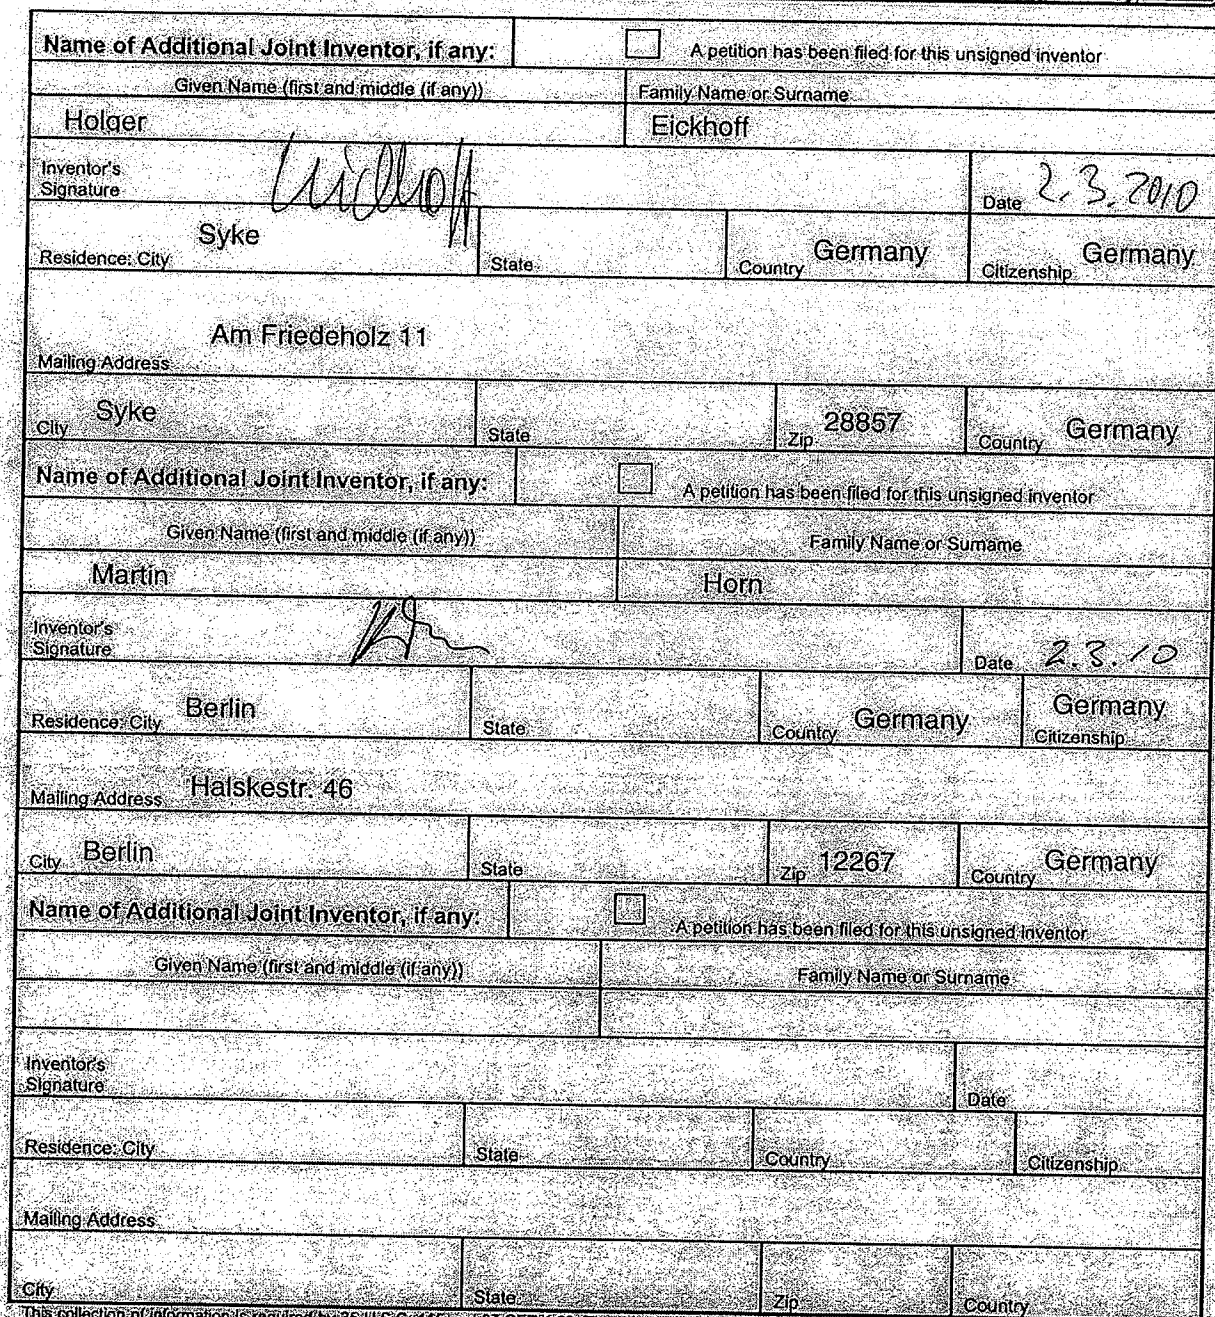 Name of Additional Joint Inventor, if any: ☐ A petition has been filed for this unsigned inventor
Given Name (first and middle (if any)) Family Name or Surname
Holger Eickhoff
Inventor's
Signature Eickhoff Date 2.3.2010
Residence: City Syke State Country Germany Citizenship Germany
Am Friedeholz 11
Mailing Address
City Syke State Zip 28857 Country Germany
Name of Additional Joint Inventor, if any: ☐ A petition has been filed for this unsigned inventor
Given Name (first and middle (if any)) Family Name or Surname
Martin Horn
Inventor's
Signature Date 2.3.10
Residence: City Berlin State Country Germany Citizenship Germany
Mailing Address Halskestr. 46
City Berlin State Zip 12267 Country Germany
Name of Additional Joint Inventor, if any: ☐ A petition has been filed for this unsigned inventor
Given Name (first and middle (if any)) Family Name or Surname
Inventor's
Signature Date
Residence: City State Country Citizenship
Mailing Address
City State Zip Country
This collection of information is required by 35 U.S.C.